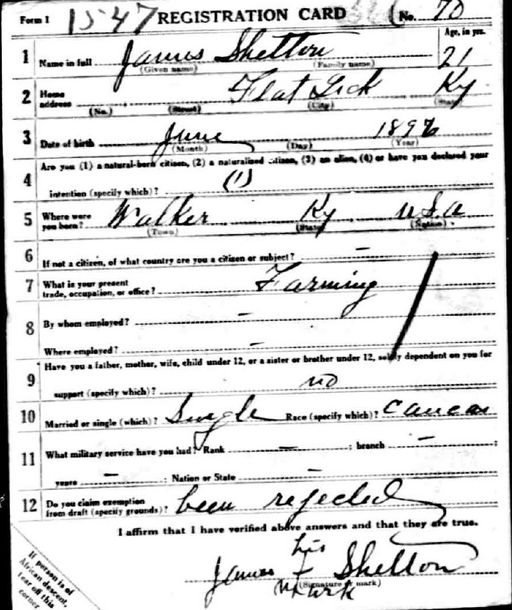 Form 1 1547 REGISTRATION CARD No. 70
1 Name in full James Shelton Age, in yrs. 21
(Given name) (Family name)
2 Home address Flat Lick Ky
(No.) (Street) (City) (State)
3 Date of birth June 1896
(Month) (Day) (Year)
4 Are you (1) a natural-born citizen, (2) a naturalized citizen, (3) an alien, (4) or have you declared your
intention (specify which)? (1)
5 Where were you born? Walker Ky U.S.A
(Town) (State) (Nation)
6 If not a citizen, of what country are you a citizen or subject? —
7 What is your present trade, occupation, or office? Farming
8 By whom employed? —
Where employed? —
9 Have you a father, mother, wife, child under 12, or a sister or brother under 12, solely dependent on you for
support (specify which)? no
10 Married or single (which)? Single Race (specify which)? Caucas
11 What military service have you had? Rank — ; branch —
years — ; Nation or State —
12 Do you claim exemption from draft (specify grounds)? been rejected
I affirm that I have verified above answers and that they are true.
his
James + Shelton
(Signature or mark)
mark
If person is of
African descent,
tear off this
corner.